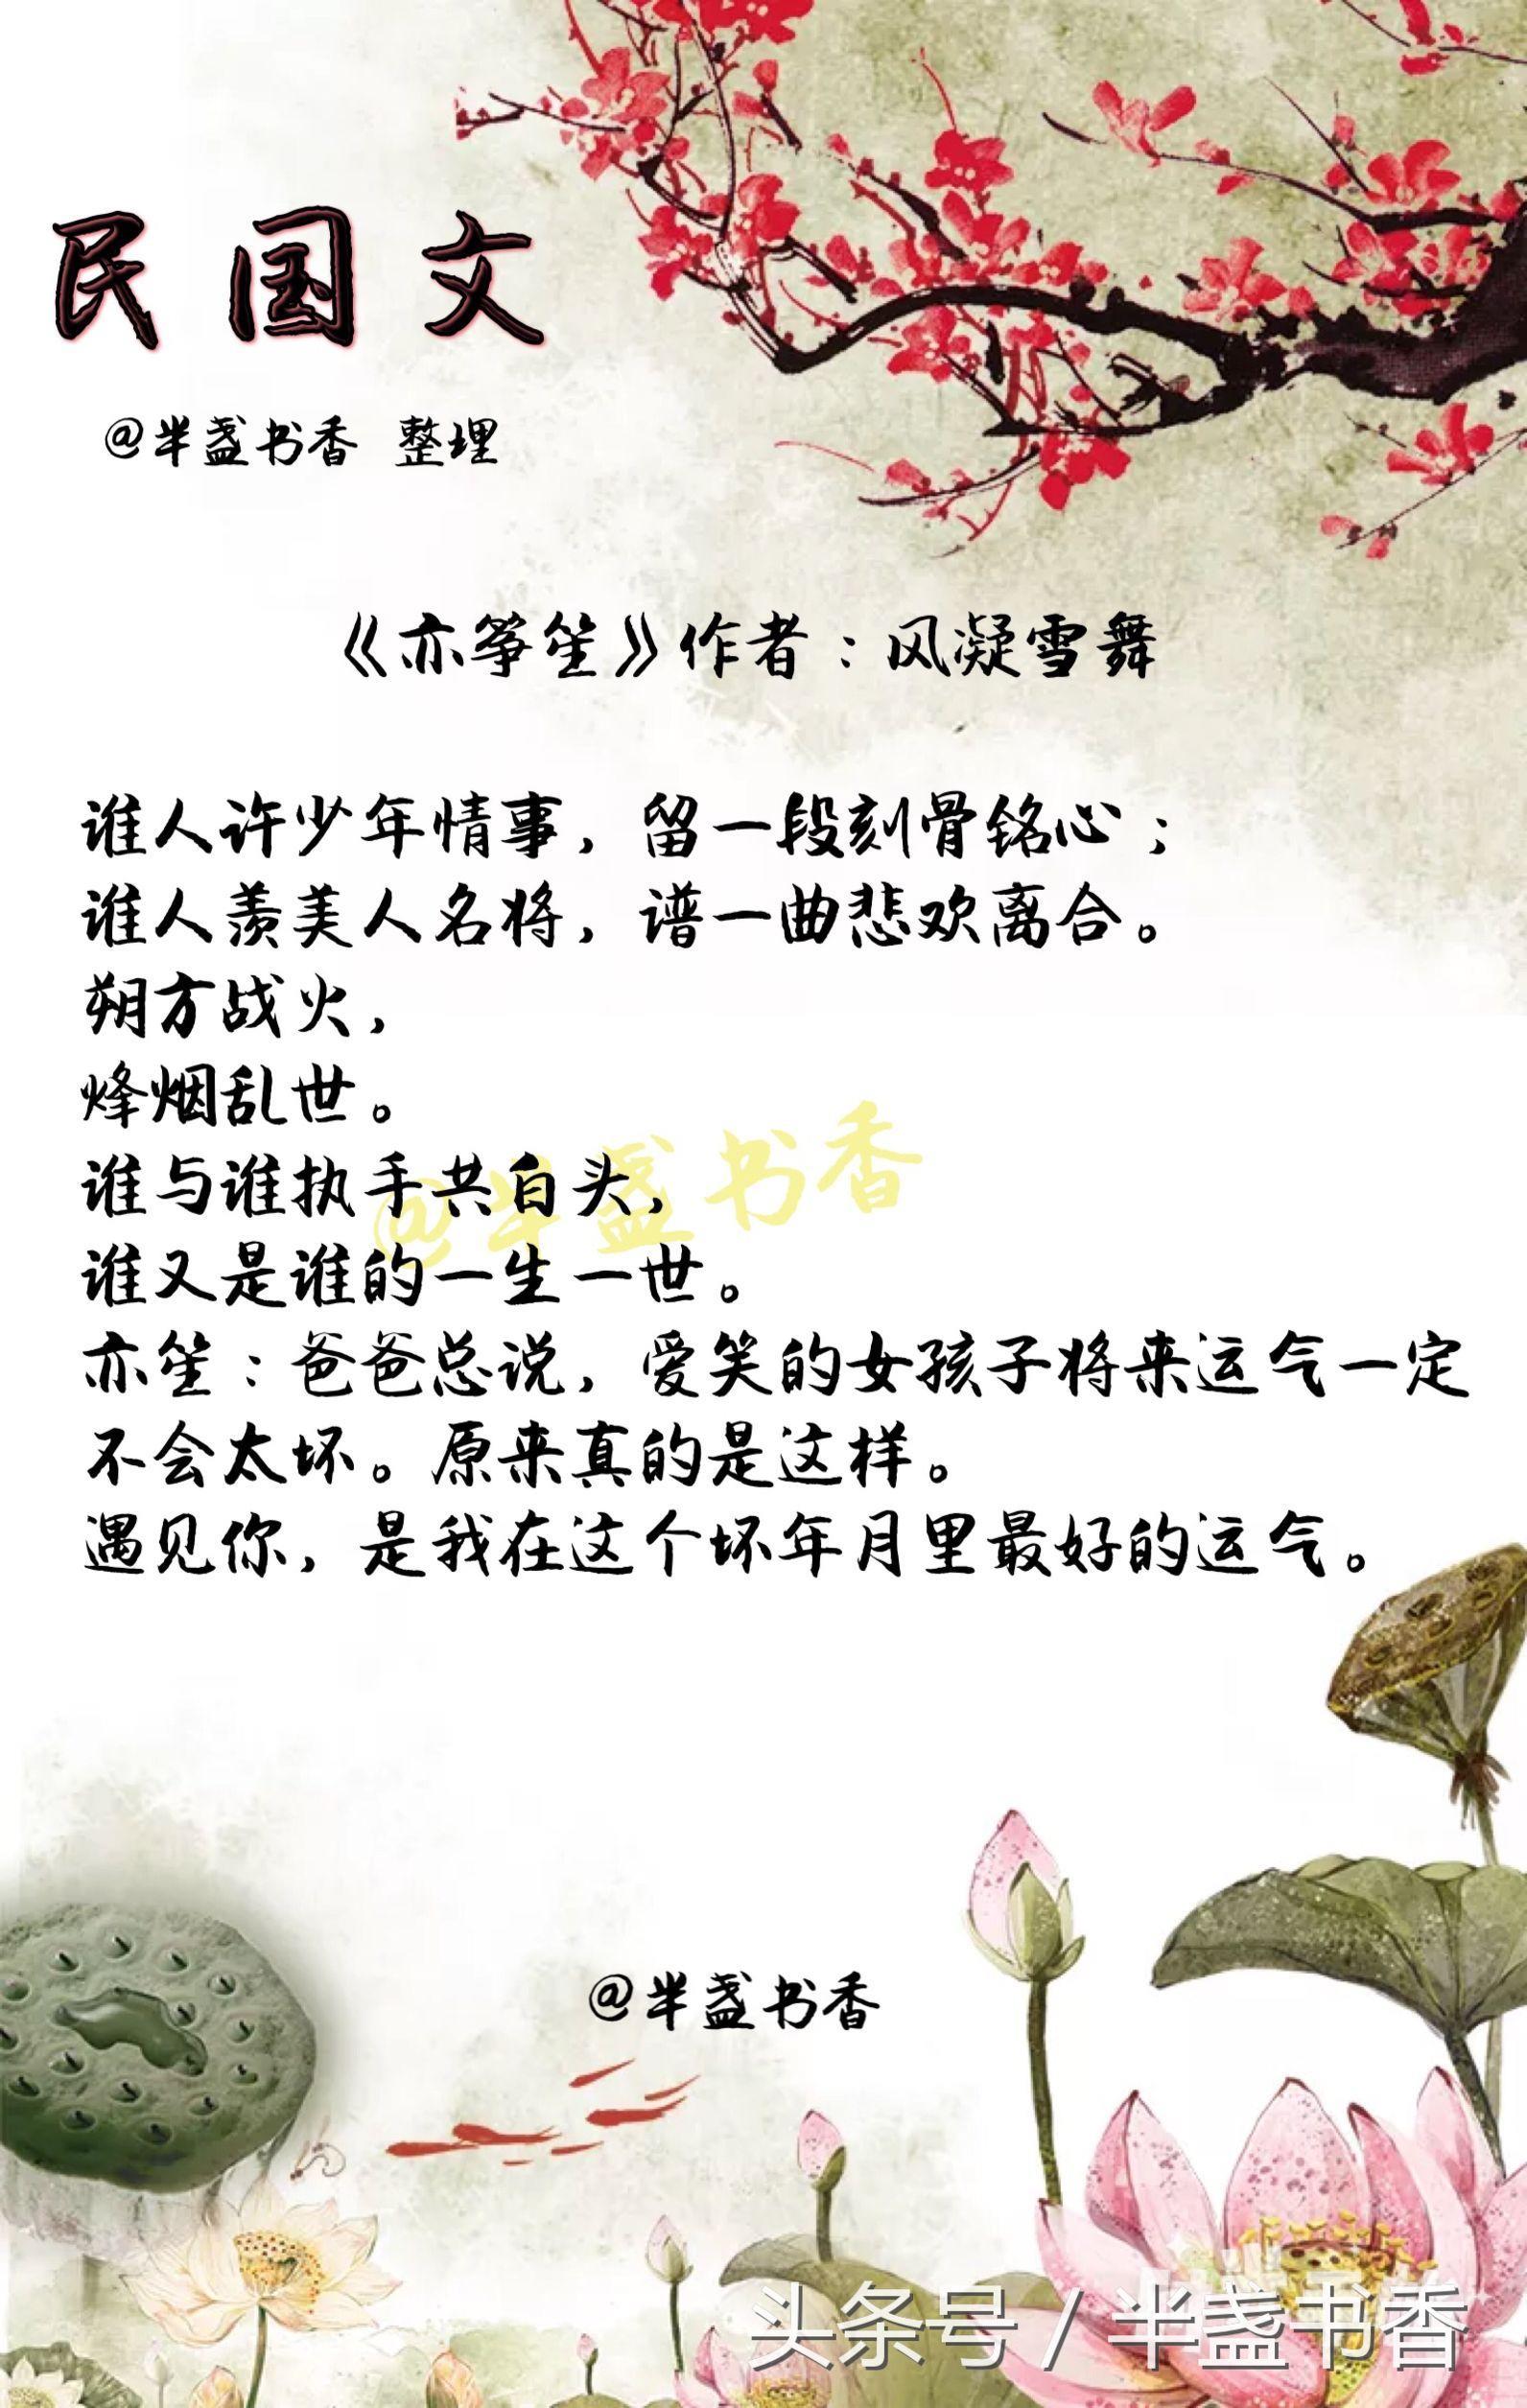 民国文
@半盏书香 整理
《亦筝笙》作者：风凝雪舞
谁人许少年情事，留一段刻骨铭心；
谁人羡美人名将，谱一曲悲欢离合。
朔方战火，
烽烟乱世。
谁与谁执手共白头，
@半盏书香
谁又是谁的一生一世。
亦笙：爸爸总说，爱笑的女孩子将来运气一定
不会太坏。原来真的是这样。
遇见你，是我在这个坏年月里最好的运气。
@半盏书香
头条号 / 半盏书香